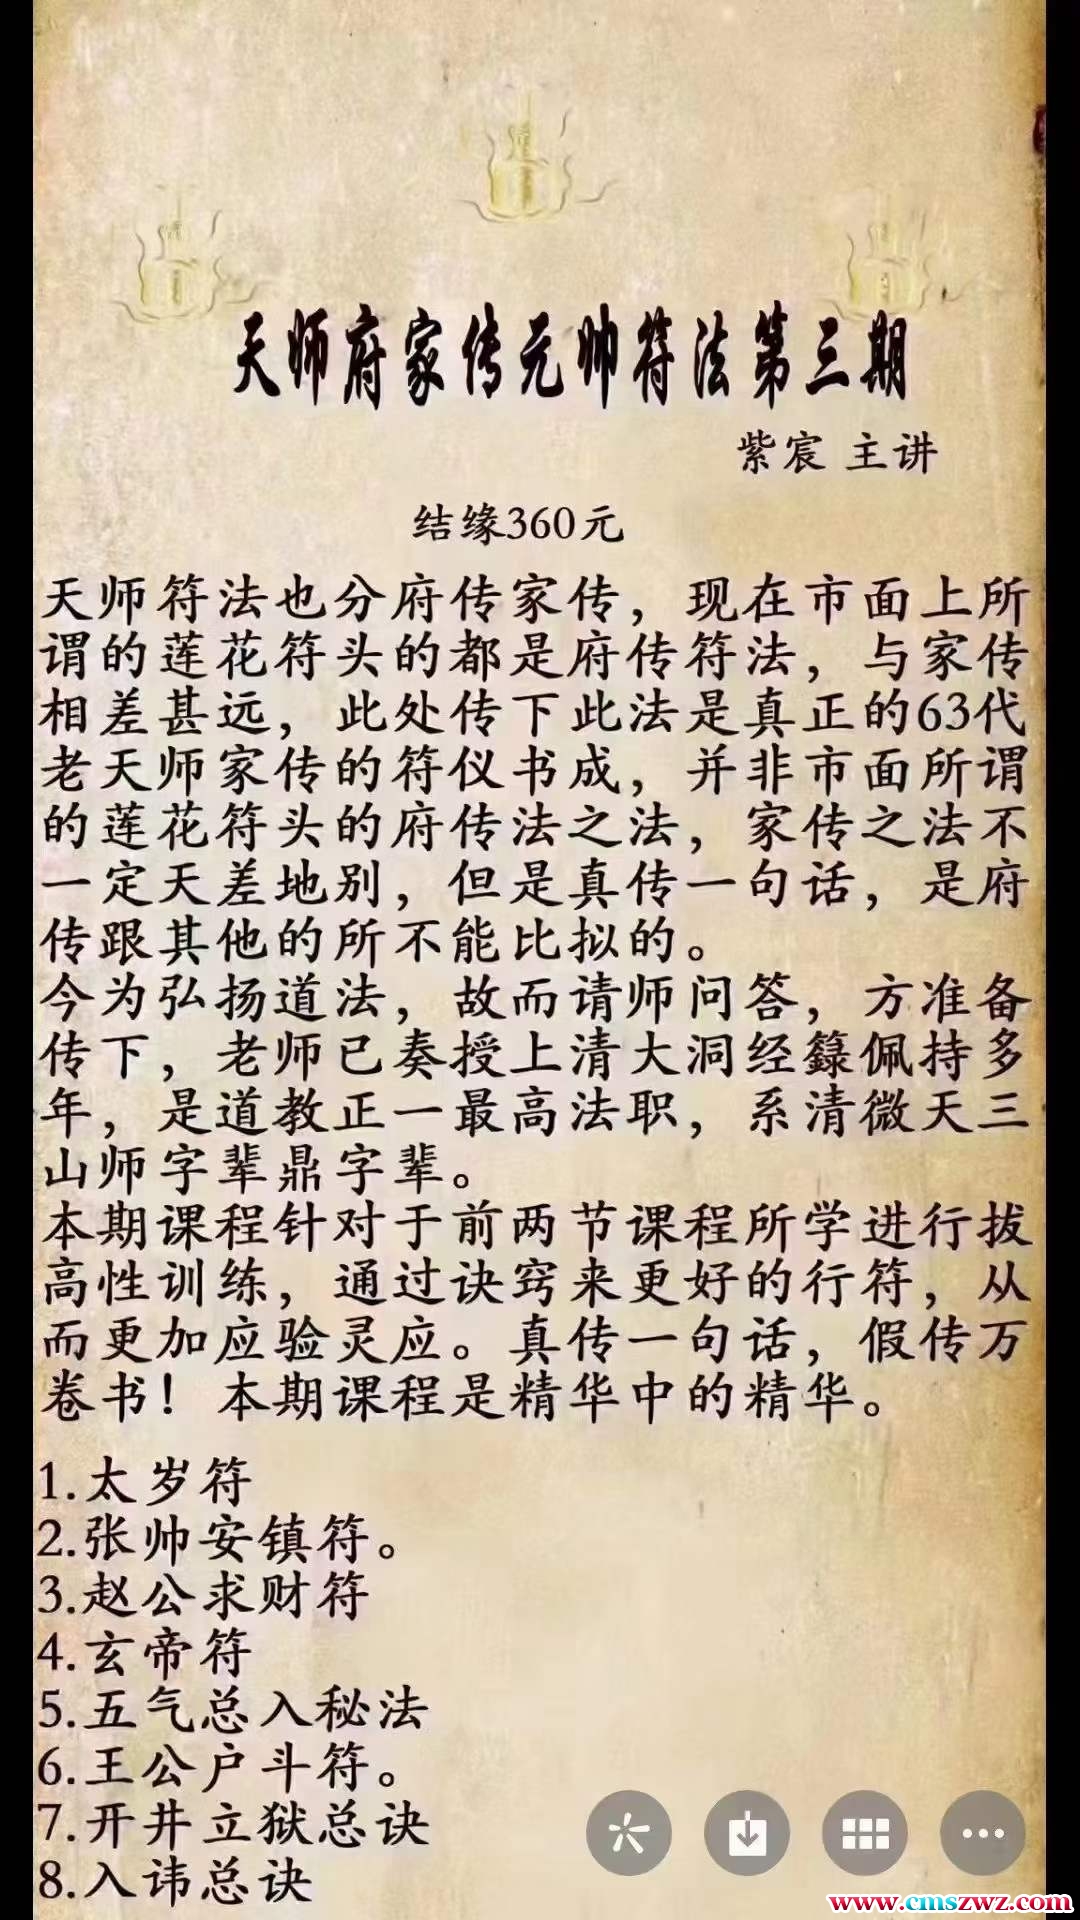 天师府家传元帅符法第三期
紫宸 主讲
结缘360元
天师符法也分府传家传，现在市面上所
谓的莲花符头的都是府传符法，与家传
相差甚远，此处传下此法是真正的63代
老天师家传的符仪书成，并非市面所谓
的莲花符头的府传法之法，家传之法不
一定天差地别，但是真传一句话，是府
传跟其他的所不能比拟的。
今为弘扬道法，故而请师问答，方准备
传下，老师已奏授上清大洞经籙佩持多
年，是道教正一最高法职，系清微天三
山师字辈鼎字辈。
本期课程针对于前两节课程所学进行拔
高性训练，通过诀窍来更好的行符，从
而更加应验灵应。真传一句话，假传万
卷书！本期课程是精华中的精华。
1.太岁符
2.张帅安镇符。
3.赵公求财符
4.玄帝符
5.五气总入秘法
6.王公户斗符。
7.开井立狱总诀
8.入讳总诀
www.cmszwz.com